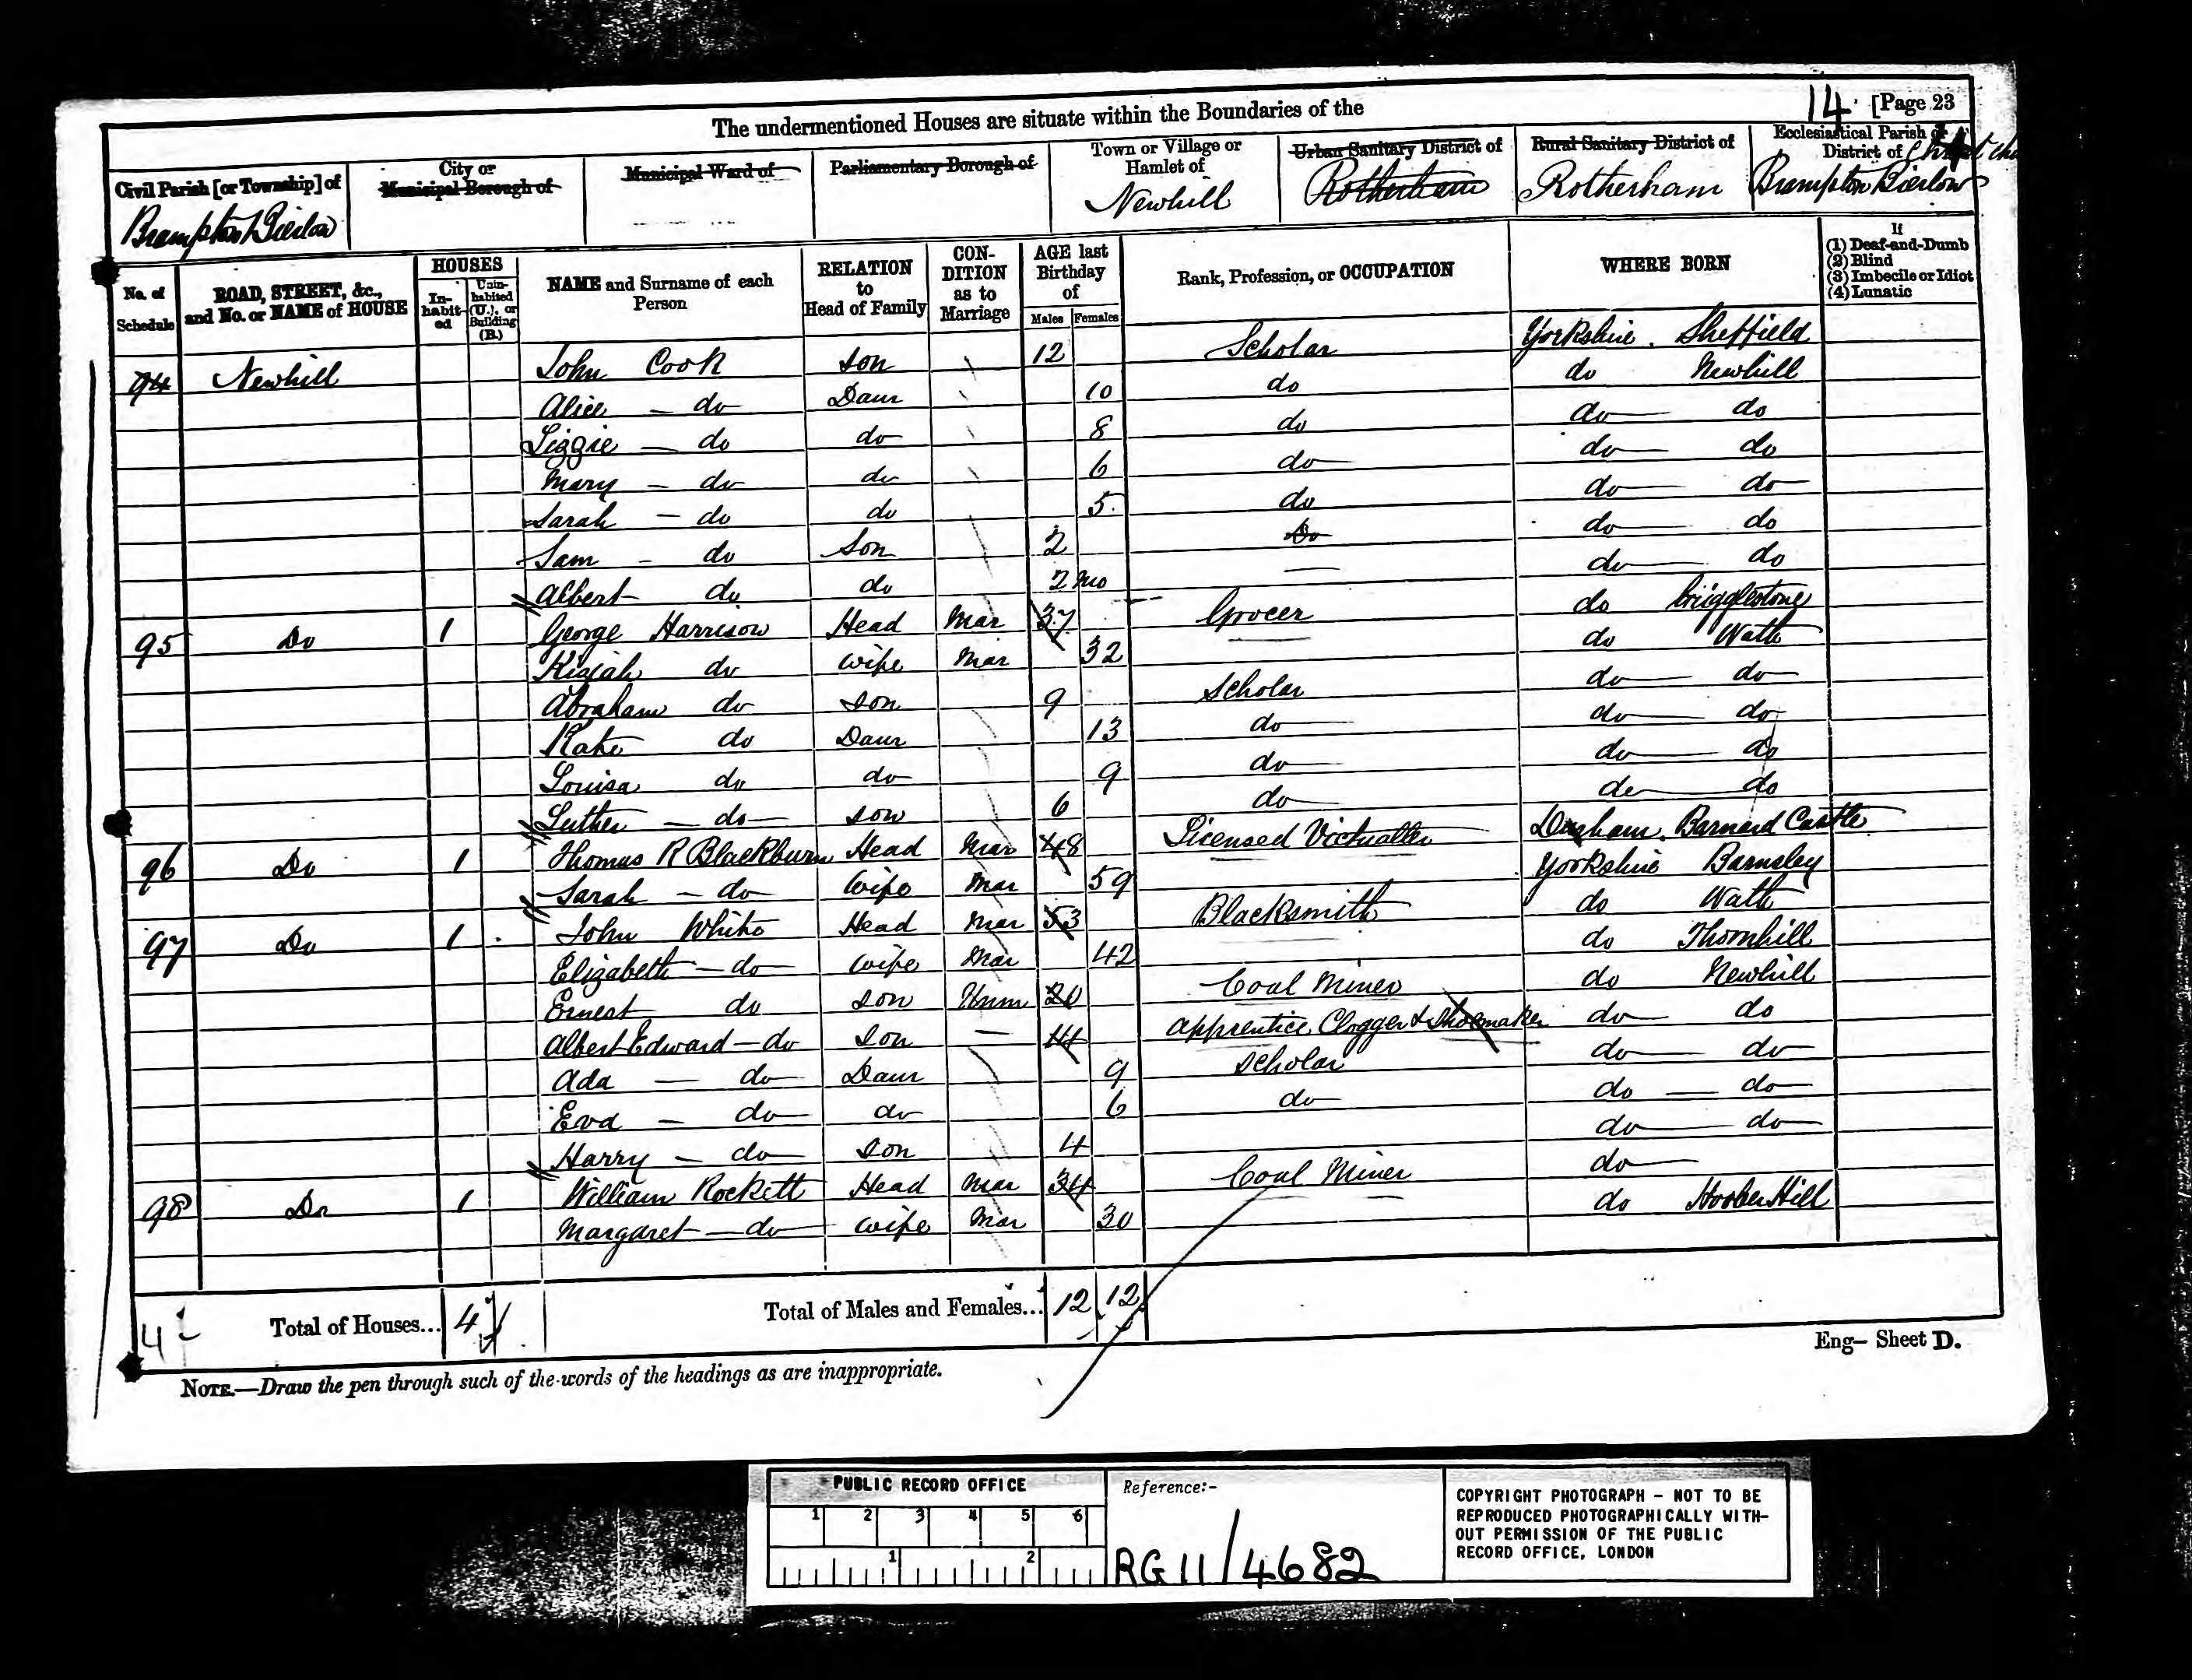 14 [Page 23
The undermentioned Houses are situate within the Boundaries of the
Civil Parish [or Township] of
City or Municipal Borough of
Municipal Ward of
Parliamentary Borough of
Town or Village or Hamlet of
Urban Sanitary District of
Rural Sanitary District of
Ecclesiastical Parish or District of
Brampton Bierlow
Newhill
Rotherham
Rotherham
Brampton Bierlow
No. of Schedule
ROAD, STREET, &c., and No. or NAME of HOUSE
HOUSES
Inhabited
Uninhabited (U.), or Building (B.)
NAME and Surname of each Person
RELATION to Head of Family
CONDITION as to Marriage
AGE last Birthday of
Males Females
Rank, Profession, or OCCUPATION
WHERE BORN
If
(1) Deaf-and-Dumb
(2) Blind
(3) Imbecile or Idiot
(4) Lunatic
94 Newhill John Cook Son 12 Scholar Yorkshire. Sheffield
Alice — do Daur 10 do do Newhill
Lizzie — do do 8 do do do
Mary — do do 6 do do do
Sarah — do do 5 do do do
Sam — do Son 2 Do do do
Albert do do 2 mo — do do
95 Do 1 George Harrison Head Mar 37 Grocer do Crigglestone
Kiziah do Wife Mar 32 do Wath
Abraham do Son 9 Scholar do do
Kate do Daur 13 do do do
Louisa do do 9 do do do
Luther — do Son 6 do do do
96 Do 1 Thomas R Blackburn Head Mar 48 Licensed Victualler Durham. Barnard Castle
Sarah — do Wife Mar 59 Yorkshire Barnsley
97 Do 1 John White Head Mar 53 Blacksmith do Wath
Elizabeth — do Wife Mar 42 do Thornhill
Ernest do Son Unm 20 Coal Miner do Newhill
Albert Edward — do Son — 14 Apprentice Clogger & Shoemaker do do
Ada — do Daur 9 Scholar do do
Eva — do do 6 do do do
Harry — do Son 4 do do
98 Do 1 William Rockett Head Mar 34 Coal Miner do
Margaret — do Wife Mar 30 do Hoober Hill
4 Total of Houses... 4 Total of Males and Females... 12 12
Eng— Sheet D.
NOTE.—Draw the pen through such of the words of the headings as are inappropriate.
PUBLIC RECORD OFFICE
1 2 3 4 5 6
1 2
Reference:-
RG 11/4682
COPYRIGHT PHOTOGRAPH - NOT TO BE
REPRODUCED PHOTOGRAPHICALLY WITH-
OUT PERMISSION OF THE PUBLIC
RECORD OFFICE, LONDON